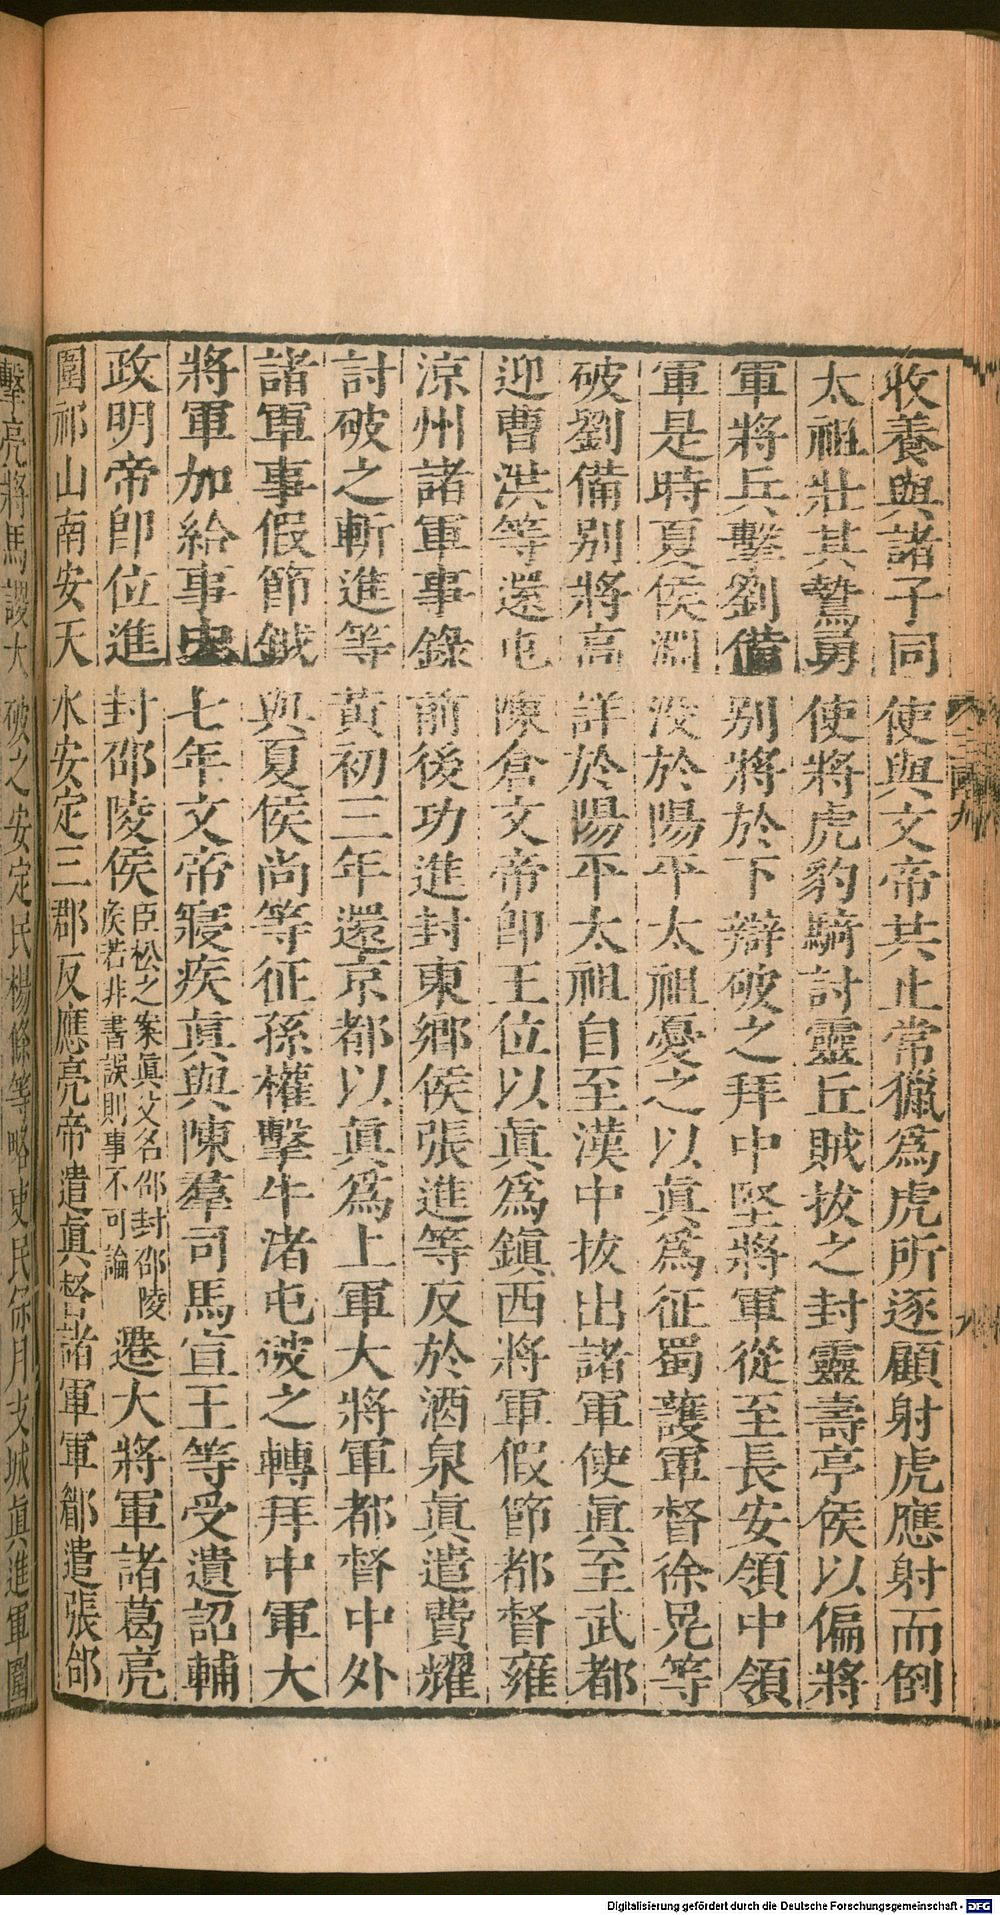 收養與諸子同使與文帝共止常獵爲虎所逐顧射虎應射而倒
太祖壯其鷙勇使將虎豹騎討靈丘賊拔之封靈壽亭侯以偏將
軍將兵擊劉備别將於下辯破之拜中堅將軍從至長安領中領
軍是時夏侯淵没於陽平太祖憂之以眞爲征蜀護軍督徐晃等
破劉備别將高詳於陽平太祖自至漢中拔出諸軍使眞至武都
迎曹洪等還屯陳倉文帝即王位以眞爲鎭西將軍假節都督雍
涼州諸軍事錄前後功進封東鄉侯張進等反於酒泉眞遣費耀
討破之斬進等黃初三年還京都以眞爲上軍大將軍都督中外
諸軍事假節鉞與夏侯尚等征孫權擊牛渚屯破之轉拜中軍大
將軍加給事中七年文帝寢疾眞與陳羣司馬宣王等受遺詔輔
政明帝即位進封邵陵侯臣松之案眞父名邵封邵陵侯若非書誤則事不可論遷大將軍諸葛亮
圍祁山南安天水安定三郡反應亮帝遣眞督諸軍軍郿遣張郃
擊亮將馬謖大破之安定民楊條等略吏民保月支城眞進軍圍
Digitalisierung gefördert durch die Deutsche Forschungsgemeinschaft - DFG